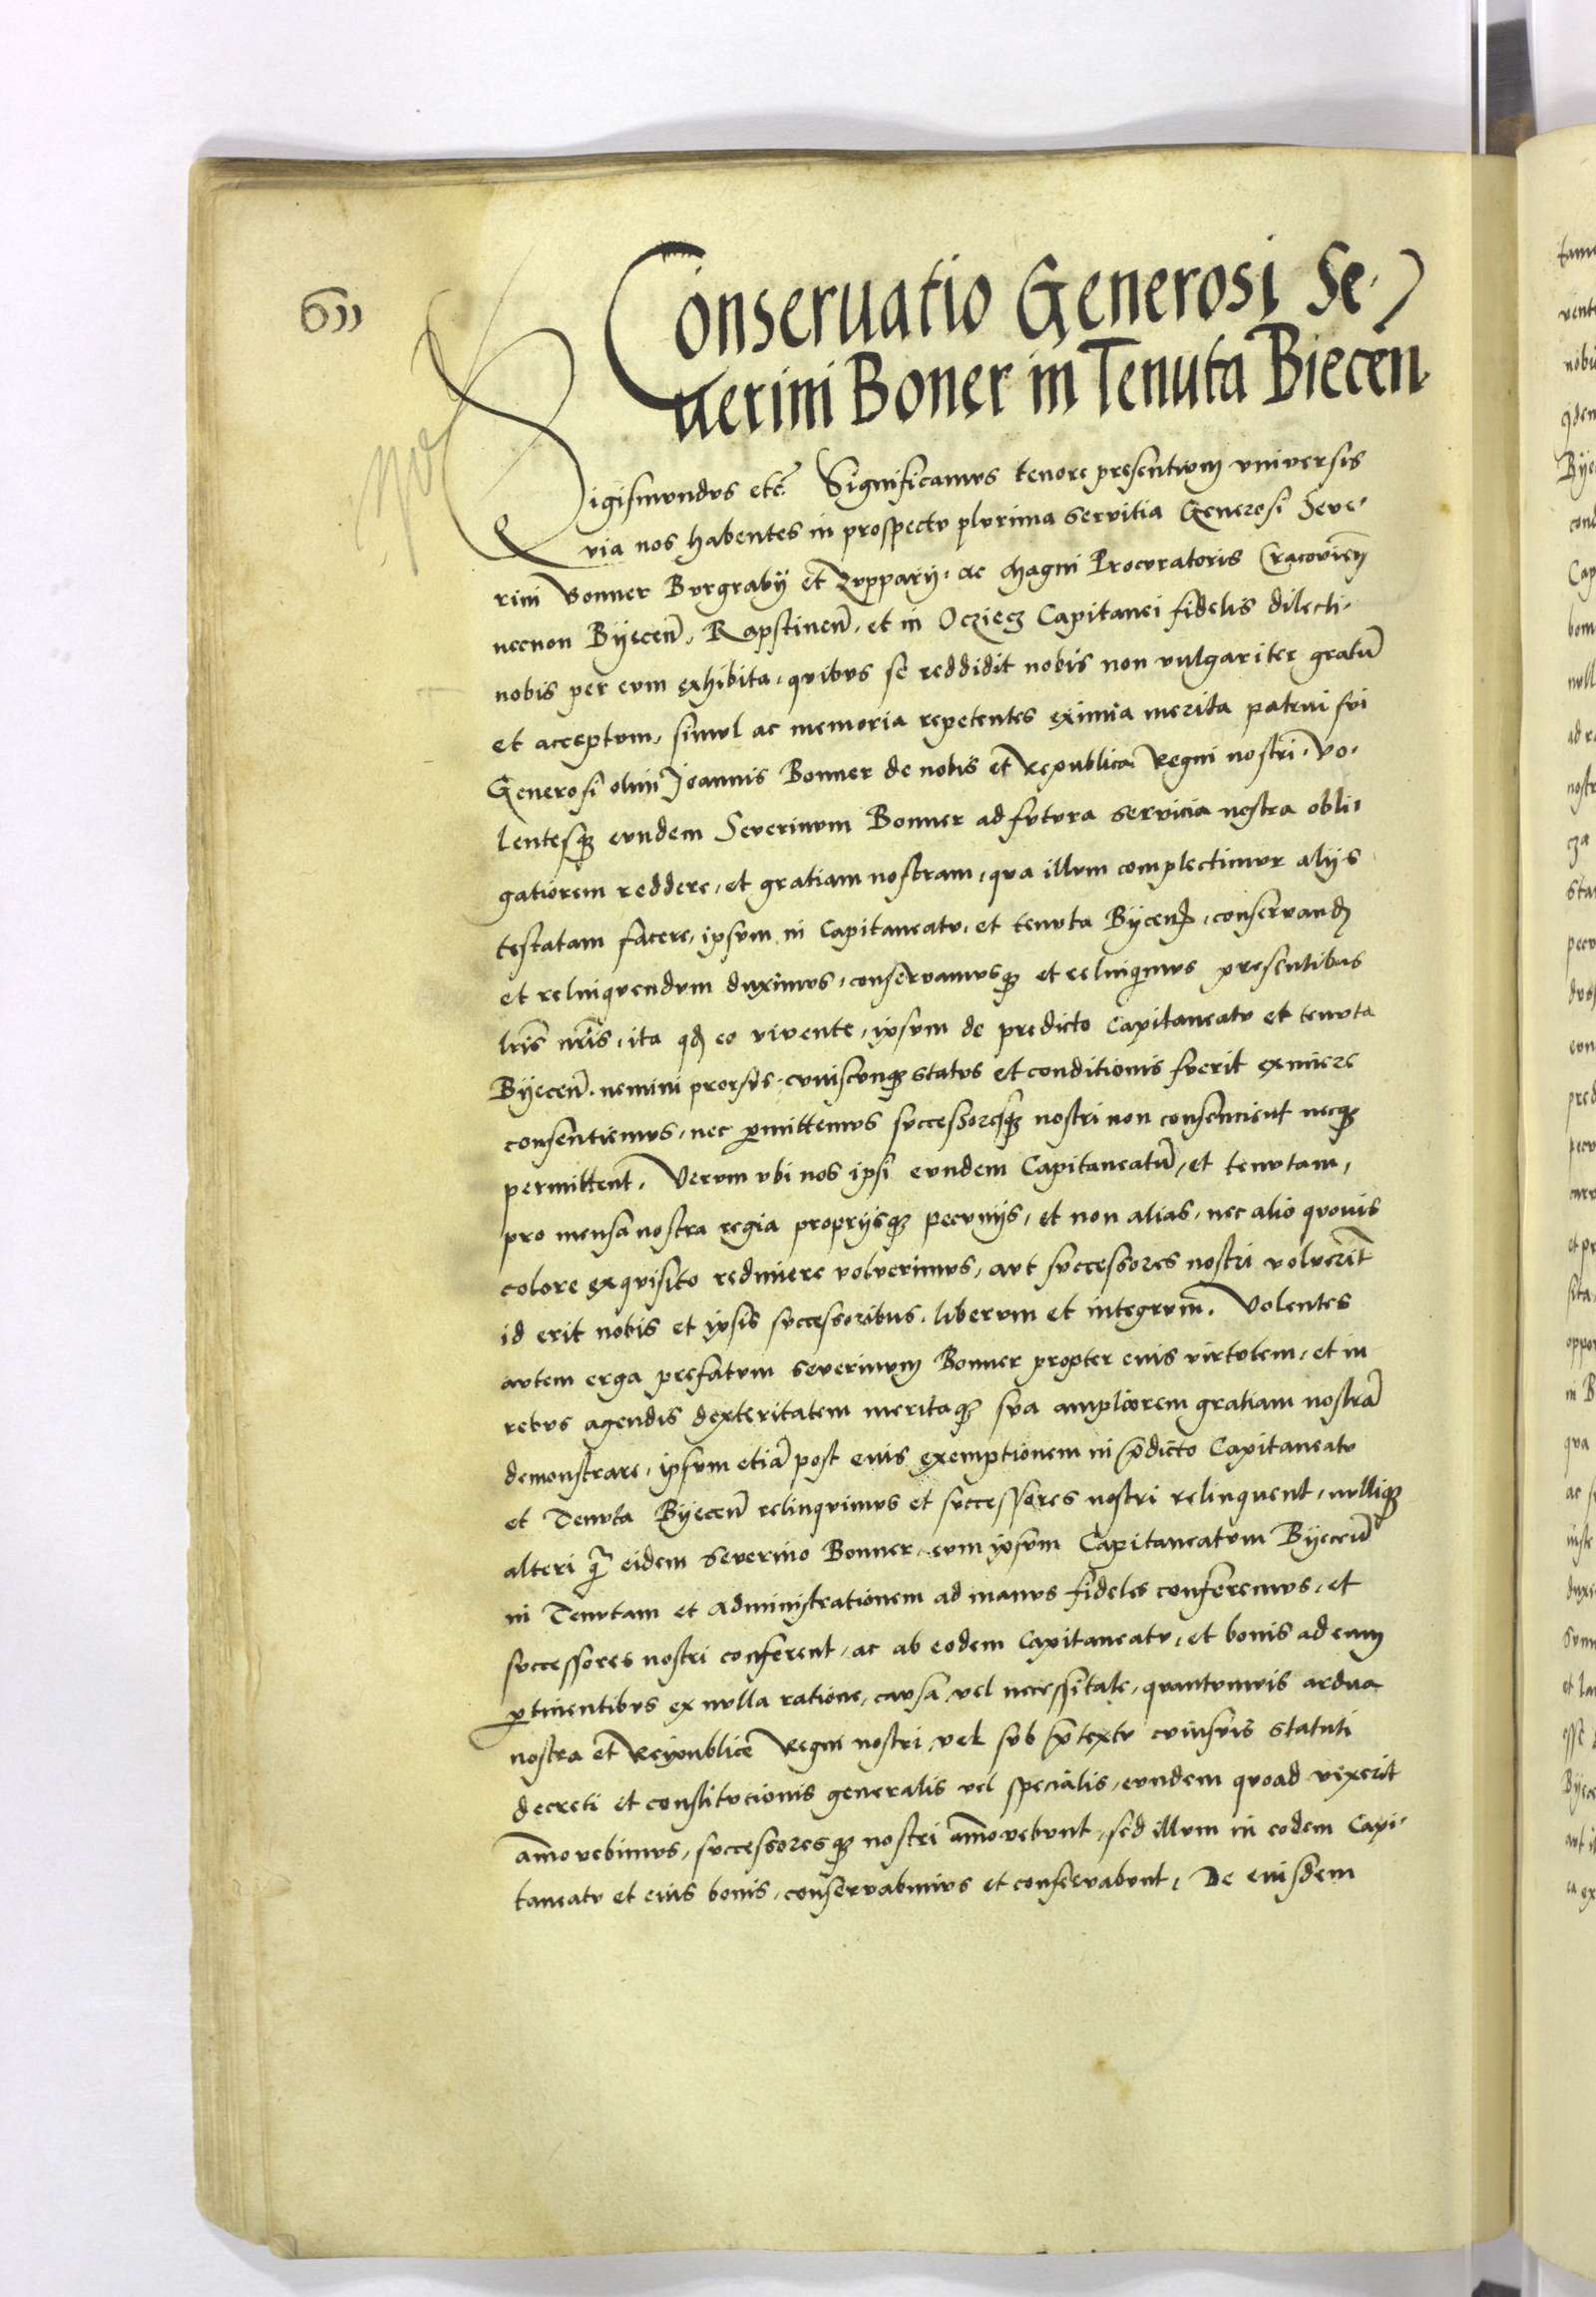 Conseruatio Generosi Se-
uerini Boner in Tenuta Biecen.
Sigismundus etc. Significamus tenore presentium vniversis
Qvia nos habentes in prospectu plvrima servitia Generosi Seve-
rini Bonner Bvrgrabij et Zvpparij, ac Magni Procvratoris Cracovień
necnon Byeceñ, Rapstineñ, et in Ocziecz Capitanei fidelis dilecti
nobis per evm exhibita, qvibvs se reddidit nobis non vulgariter gratũ
et acceptvm, simvl ac memoria repetentes eximia merita patrui svi
Generosi olim Joannis Bonner de nobis et Republica Regni nostri. Vo-
lentesq3 evndem Severinvm Bonner ad fvtvra servicia nostra obli-
gatiorem reddere, et gratiam nostram, qva illvm complectimvr alijs
testatam facere, ipsvm in Capitaneatv, et tenvta Byceñ, conservand
et relinqvendvm duximvs, conservamvsq3 et relinqimvs presentibus
lris nris, ita qd eo vivente, ipsvm de predicto Capitaneatv et tenvta
Byeceñ. nemini prorsvs, cviuscvnq3 statvs et conditionis fverit eximere
consentiemvs, nec pmittemvs svccessoresq3 nostri non consencient necq3
permittent. Vervm vbi nos ipsi evndem Capitaneatũ, et tenvtam,
pro mensa nostra regia proprijsq3 pecvnijs, et non alias, nec alio qvovis
colore exqvisito redimere volverimvs, avt svccessores nostri volverĩt
id erit nobis et ipsis svccessoribus, libervm et integrvm. Volentes
avtem erga prefatvm severinvm Bonner propter eius virtvtem, et in
rebvs agendis dexteritatem meritaq3 sva ampliorem gratiam nostrã
demonstrare, ipsvm etiã post eius exemptionem in p̃dicto Capitaneatv
et Tenvta Byeceñ relinqvimvs et svccessores nostri relinquent, nvlliq3
alteri q̃ eidem Severino Bonner, evm ipsvm Capitaneatvm Byeceñ
in Tenvtam et administrationem ad manvs fideles conferemvs, et
svccessores nostri conferent, ac ab eodem Capitaneatv, et bonis ad eum
ptinentibvs ex nvlla ratione, cavsa, vel necessitate, qvantvmvis ardva
nostra et Reipublice Regni nostri, vel svb p̃textv cviusvis statuti
decreti et constitvcionis generalis vel specialis, evndem qvoad vixerit
amovebimvs, svccessoresq3 nostri amovebvnt, sed illvm in eodem Capi-
taneatv et eius bonis, conservabimvs et conservabvnt, De eiusdem